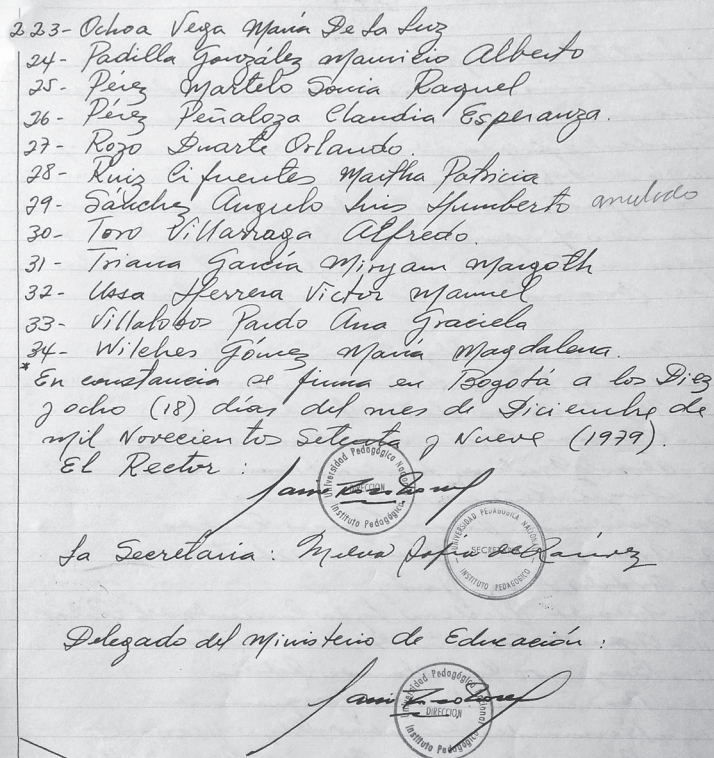 223- Ochoa Vega María De La Luz
24- Padilla González Mauricio Alberto
25- Pérez Martelo Sonia Raquel
26- Pérez Peñaloza Claudia Esperanza.
27- Rozo Duarte Orlando.
28- Ruiz Cifuentes Martha Patricia
29- Sánchez Angulo Luis Humberto anulado
30- Toro Villarraga Alfredo.
31- Triana García Miryam Margoth
32- Ussa Herrera Victor Manuel
33- Villalobos Pardo Ana Graciela
34- Wilches Gómez María Magdalena.
*En constancia se firma en Bogotá a los Diez
y ocho (18) días del mes de Diciembre de
mil Novecientos Setenta y Nueve (1979).
El Rector:
Universidad Pedagógica Nacional
DIRECCION
Instituto Pedagógico
La Secretaria: Melva
UNIVERSIDAD PEDAGOGICA NACIONAL
INSTITUTO PEDAGOGICO
Delegado del Ministerio de Educación:
Universidad Pedagógica Nacional
DIRECCION
Instituto Pedagógico